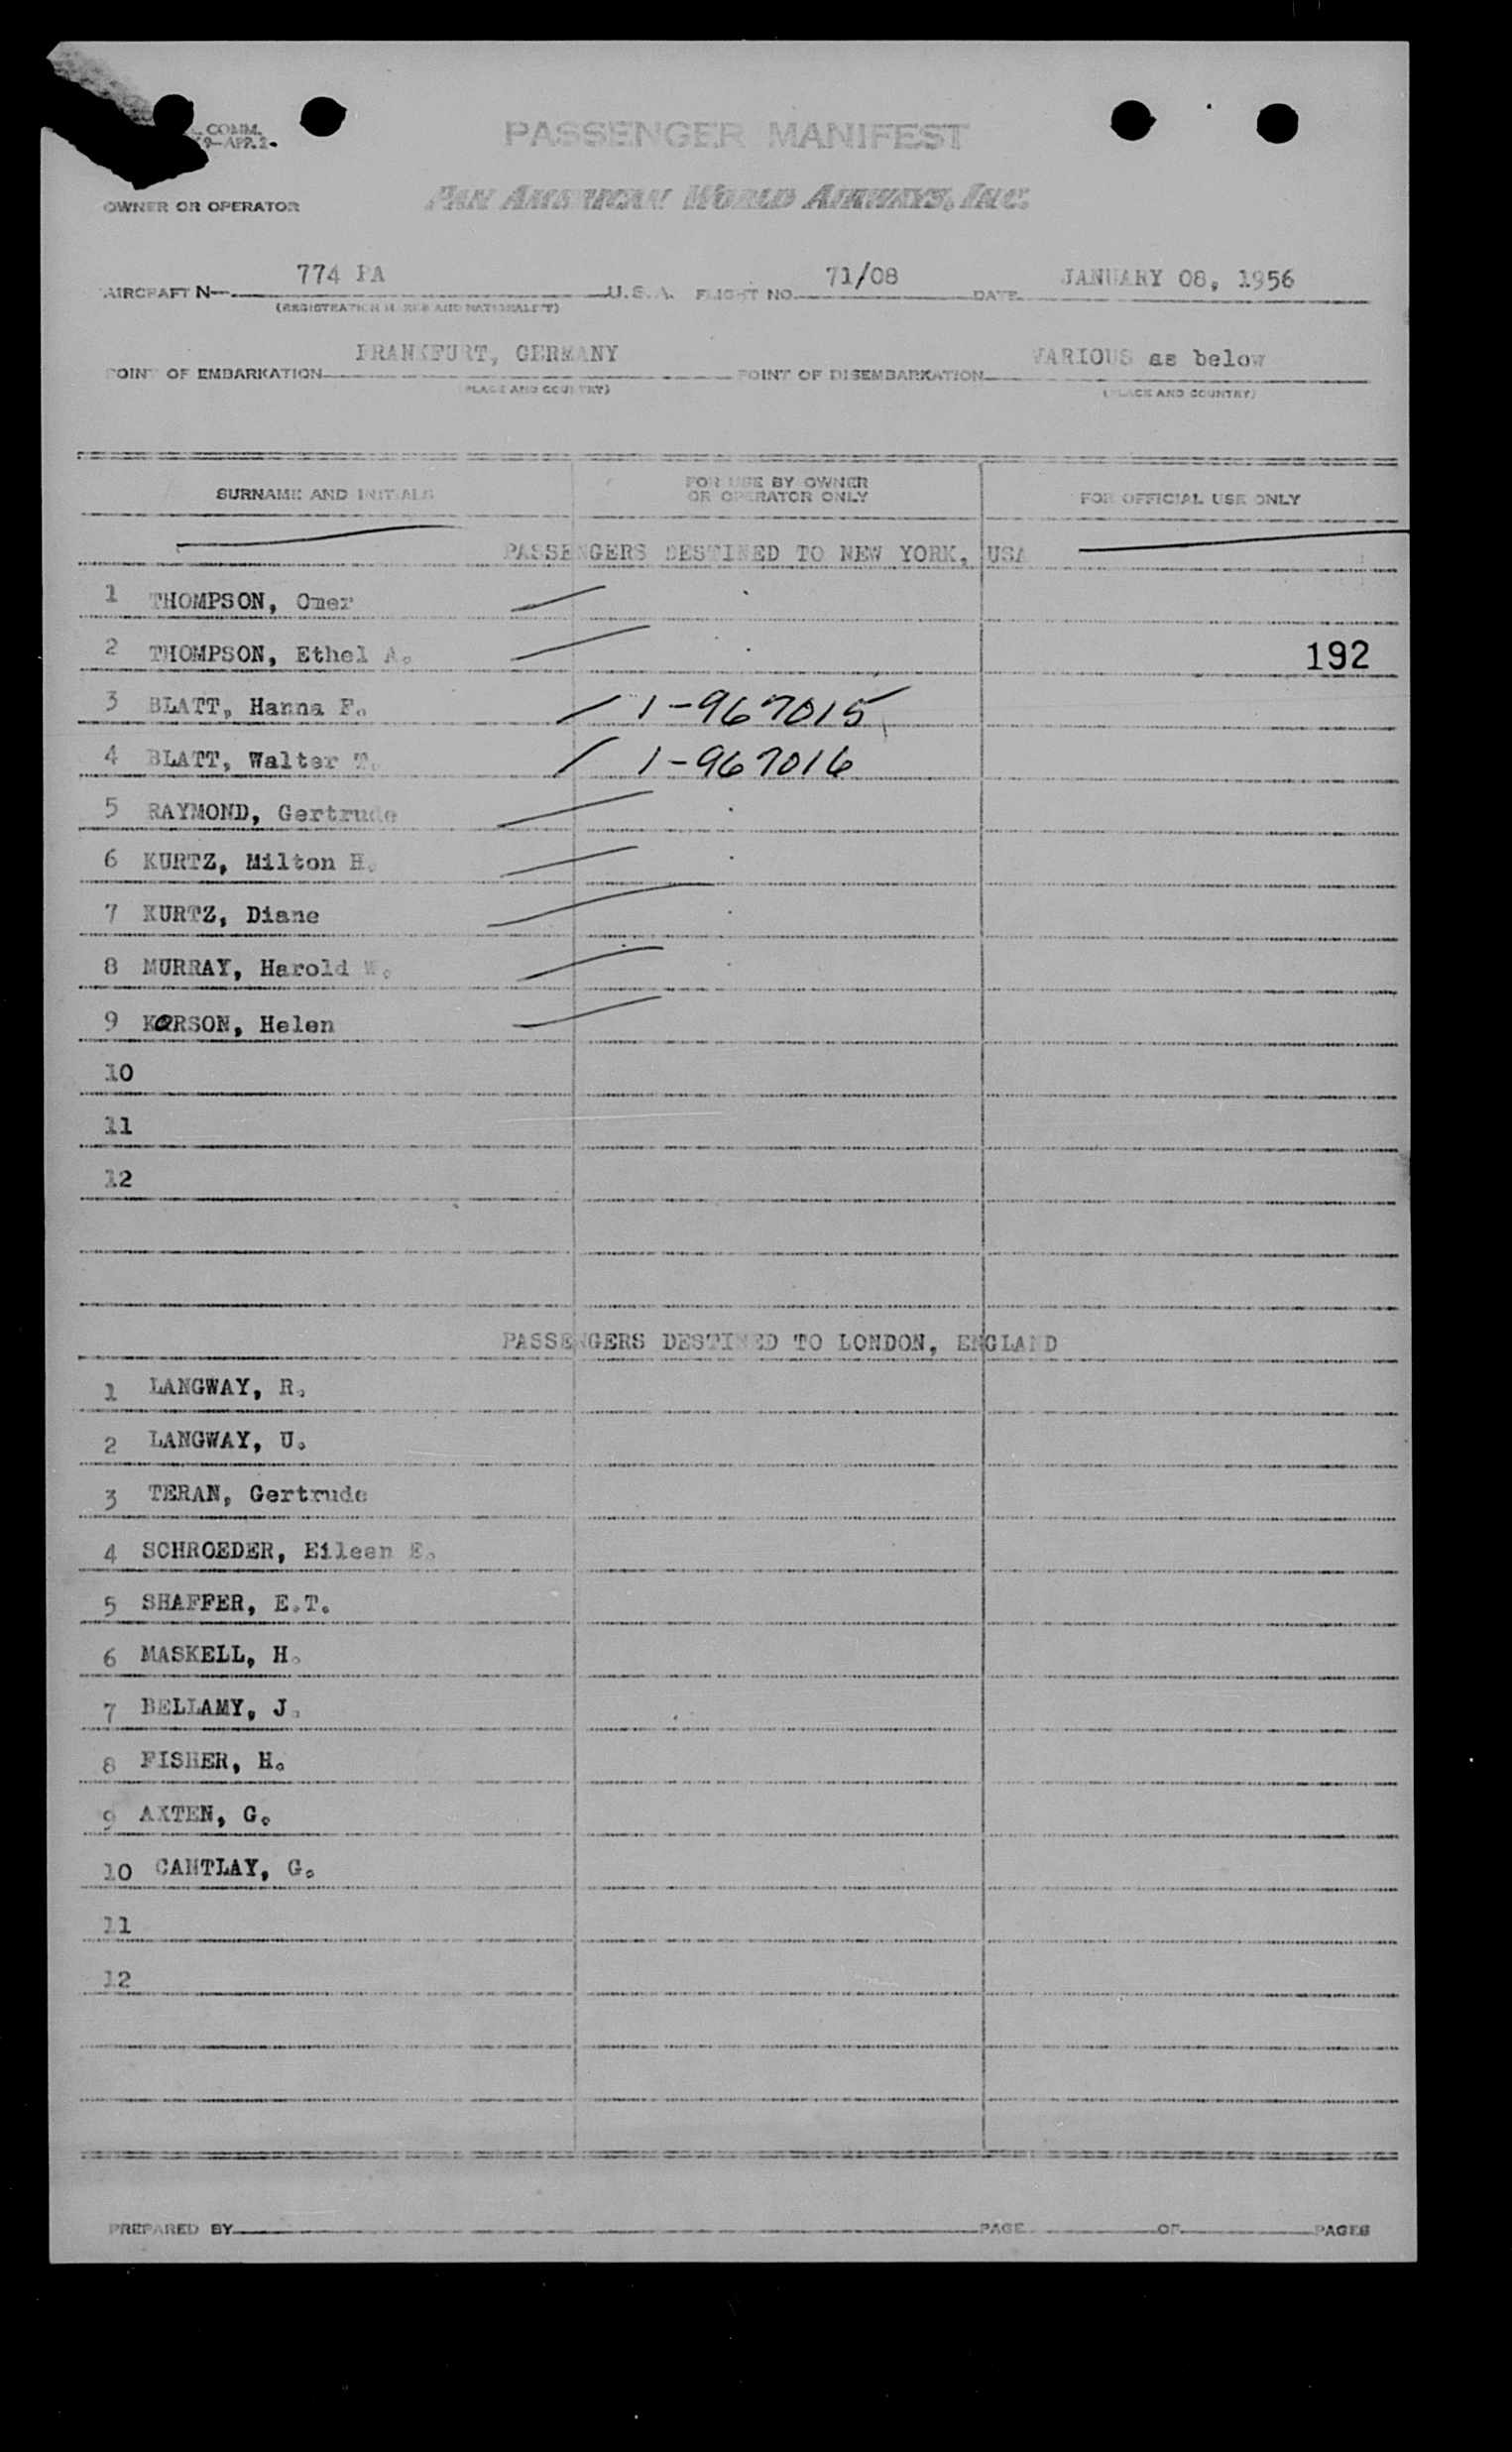 COMM.
9-APP.2-
PASSENGER MANIFEST
OWNER OR OPERATOR PAN AMERICAN WORLD AIRWAYS, INC.
AIRCRAFT N 774 PA U.S.A. FLIGHT NO. 71/08 DATE JANUARY 08, 1956
(REGISTRATION MARKS AND NATIONALITY)
POINT OF EMBARKATION FRANKFURT, GERMANY POINT OF DISEMBARKATION VARIOUS as below
(PLACE AND COUNTRY) (PLACE AND COUNTRY)
SURNAME AND INITIALS FOR USE BY OWNER OR OPERATOR ONLY FOR OFFICIAL USE ONLY
PASSENGERS DESTINED TO NEW YORK, USA
1 THOMPSON, Omer
2 THOMPSON, Ethel A. 192
3 BLATT, Hanna F. 1-967015
4 BLATT, Walter T. 1-967016
5 RAYMOND, Gertrude
6 KURTZ, Milton H.
7 KURTZ, Diane
8 MURRAY, Harold W.
9 Helen
10
11
12
PASSENGERS DESTINED TO LONDON, ENGLAND
1 LANGWAY, R.
2 LANGWAY, U.
3 TERAN, Gertrude
4 SCHROEDER, Eileen E.
5 SHAFFER, E.T.
6 MASKELL, H.
7 BELLAMY, J.
8 FISHER, H.
9 AXTEN, G.
10 CANTLAY, G.
11
12
PREPARED BY PAGE OF PAGES